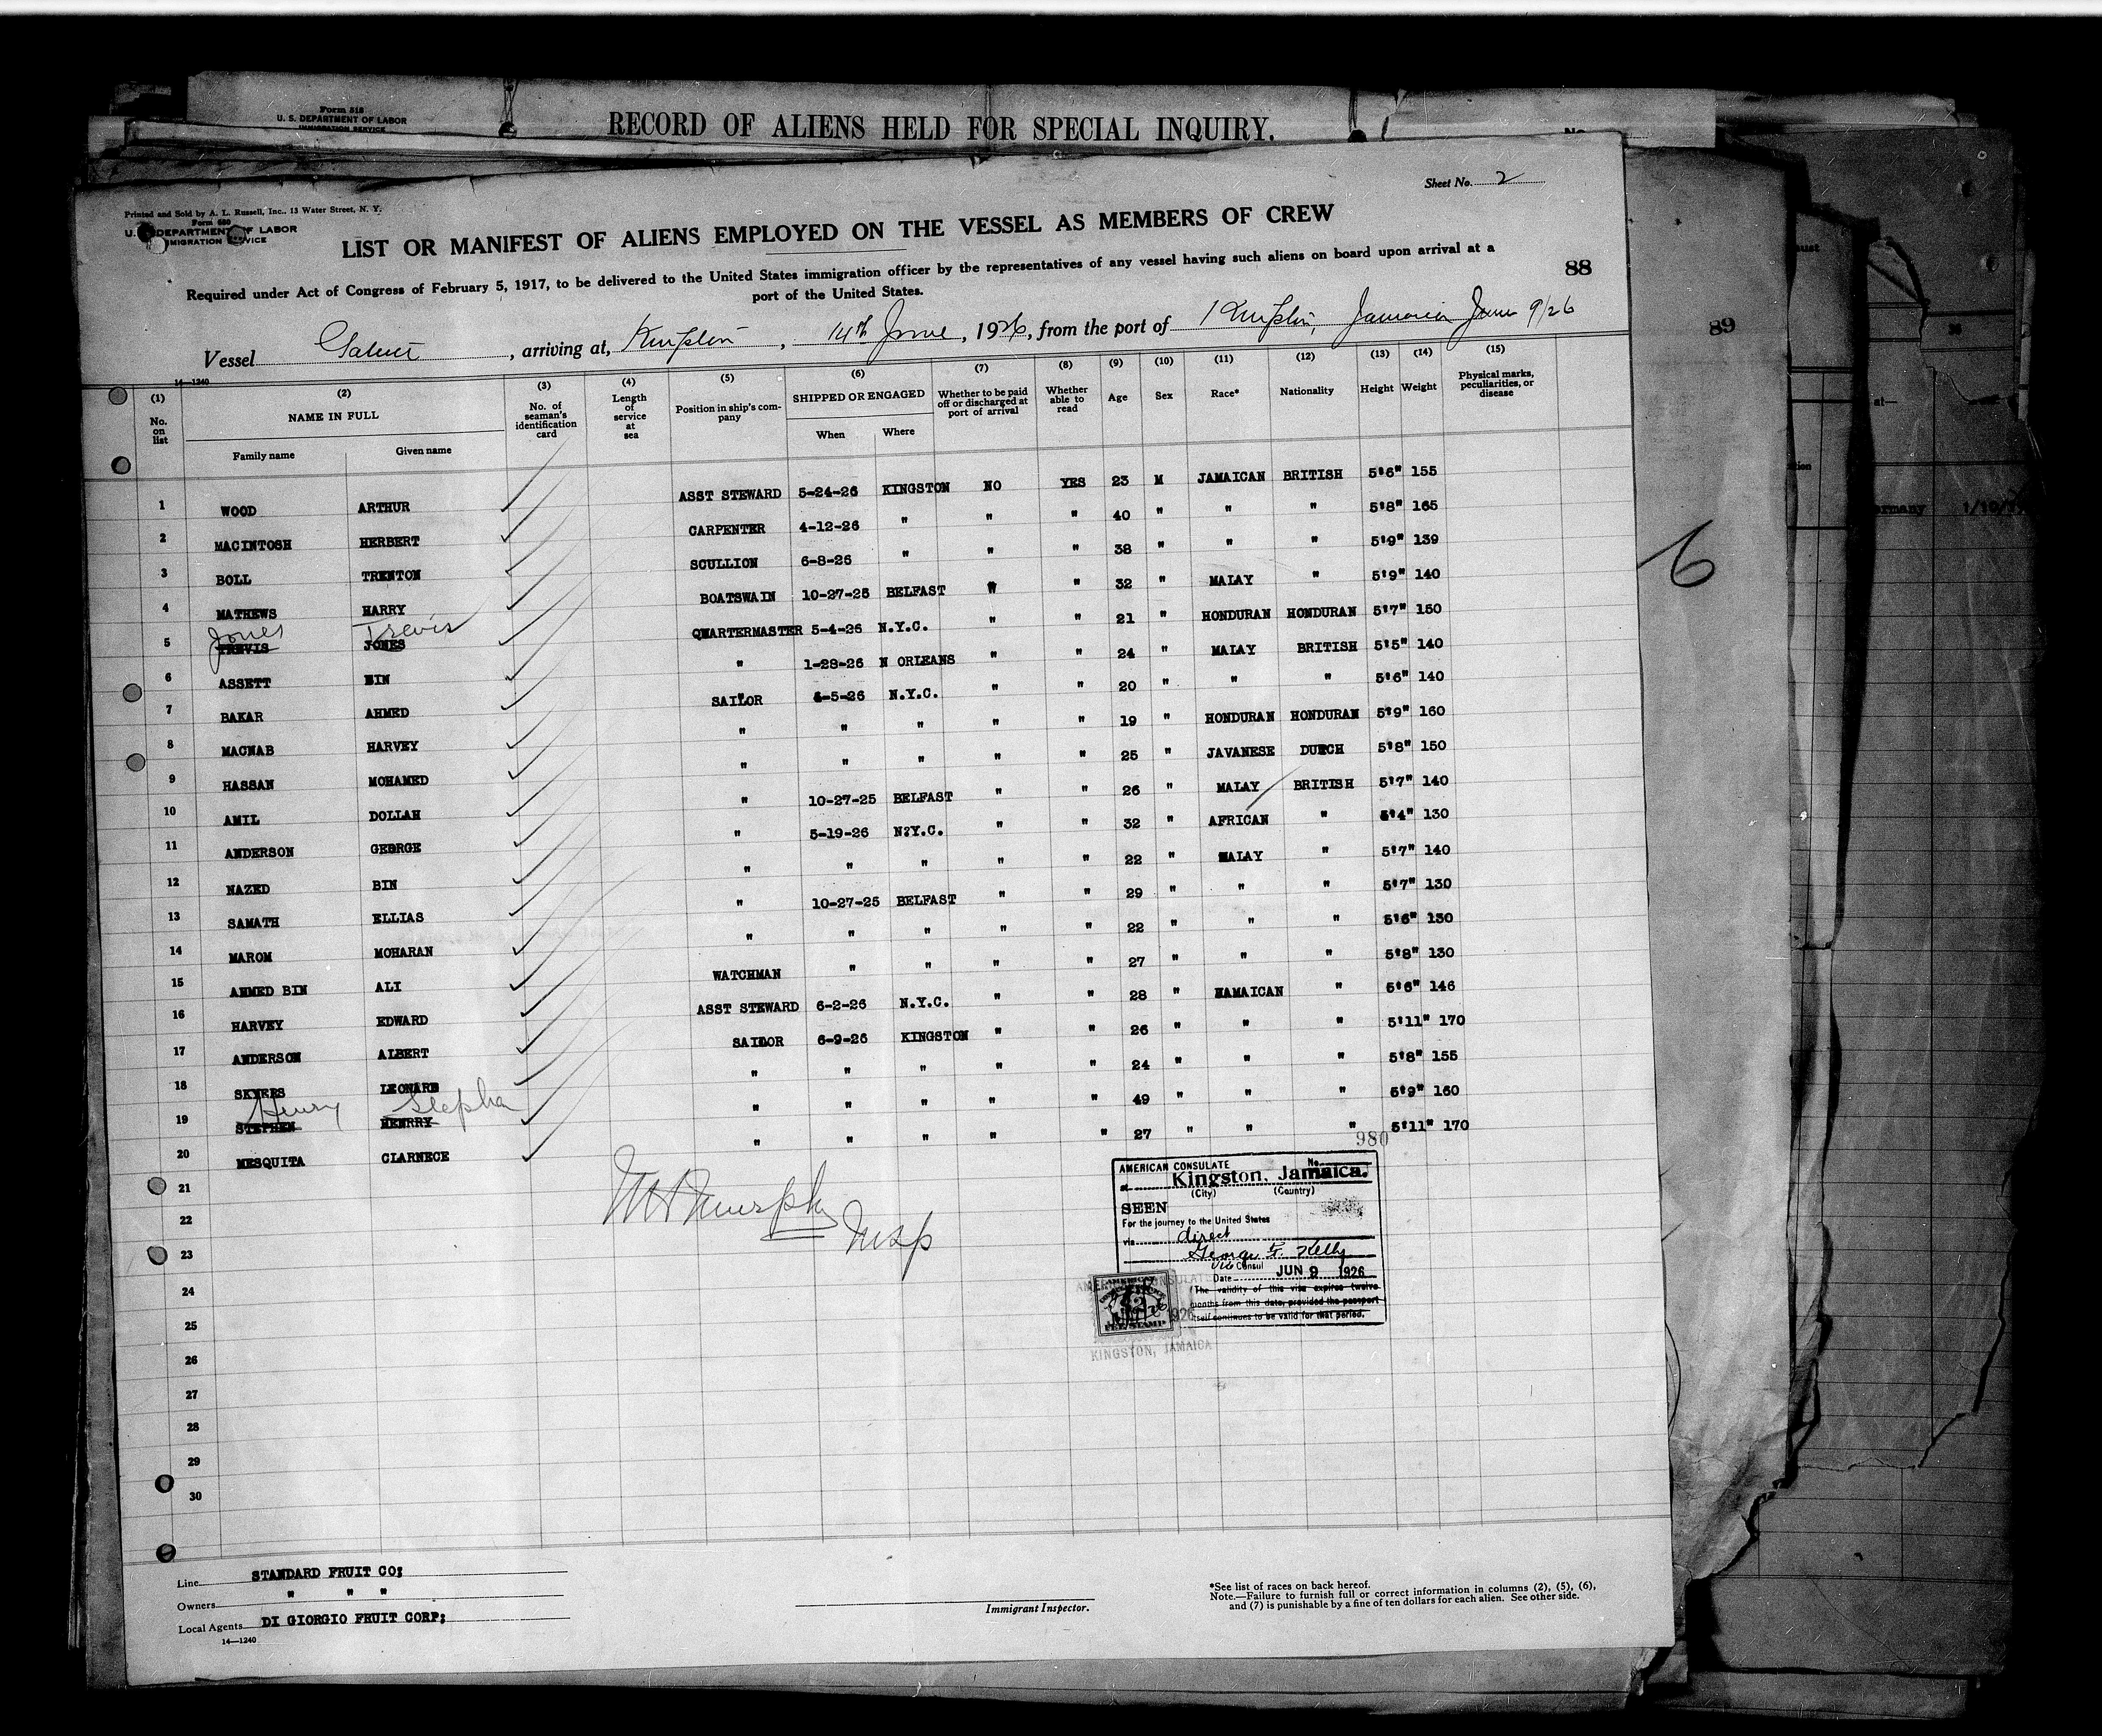 Form 518
U. S. DEPARTMENT OF LABOR
IMMIGRATION SERVICE
RECORD OF ALIENS HELD FOR SPECIAL INQUIRY.
No.
Sheet No. 2
Printed and Sold by A. L. Russell, Inc., 13 Water Street, N. Y.
Form 680
U. DEPARTMENT OF LABOR
IMIGRATION SERVICE
LIST OR MANIFEST OF ALIENS EMPLOYED ON THE VESSEL AS MEMBERS OF CREW
88
89
Required under Act of Congress of February 5, 1917, to be delivered to the United States immigration officer by the representatives of any vessel having such aliens on board upon arrival at a
port of the United States.
Vessel , arriving at, , 14th June, 1926, from the port of Jamaica June 9/26
14—1240
(1) (2) (3) (4) (5) (6) (7) (8) (9) (10) (11) (12) (13) (14) (15)
No. on list NAME IN FULL No. of seaman's identification card Length of service at sea Position in ship's company SHIPPED OR ENGAGED Whether to be paid off or discharged at port of arrival Whether able to read Age Sex Race* Nationality Height Weight Physical marks, peculiarities, or disease
Family name Given name When Where
1 WOOD ARTHUR ASST STEWARD 5-24-26 KINGSTON NO YES 23 M JAMAICAN BRITISH 5'6" 155
2 MACINTOSH HERBERT CARPENTER 4-12-26 " " " 40 " " " 5'8" 165
3 BOLL TRENTON SCULLION 6-8-26 " " " 38 " " " 5'9" 139
4 MATHEWS HARRY BOATSWAIN 10-27-25 BELFAST " " 32 " MALAY " 5'9" 140
Jones Trevis
5 TREVIS JONES QUARTERMASTER 5-4-26 N.Y.C. " " 21 " HONDURAN HONDURAN 5'7" 150
6 ASSETT BIN " 1-28-26 N ORLEANS " " 24 " MALAY BRITISH 5'5" 140
7 BAKAR AHMED SAILOR 5-26 N.Y.C. " " 20 " " " 5'6" 140
8 MACNAB HARVEY " " " " " 19 " HONDURAN HONDURAN 5'9" 160
9 HASSAN MOHAMED " " " " " 25 " JAVANESE DUTCH 5'8" 150
10 AMIL DOLLAH " 10-27-25 BELFAST " " 26 " MALAY BRITISH 5'7" 140
11 ANDERSON GEORGE " 5-19-26 N?Y.C. " " 32 " AFRICAN " 5'4" 130
12 NAZED BIN " " " " " 22 " MALAY " 5'7" 140
13 SAMATH ELLIAS " 10-27-25 BELFAST " " 29 " " " 5'7" 130
14 MAROM MOHARAN " " " " " 22 " " " 5'6" 130
15 AHMED BIN ALI WATCHMAN " " " " 27 " " " 5'8" 130
16 HARVEY EDWARD ASST STEWARD 6-2-26 N.Y.C. " " 28 " HAMAICAN " 5'6" 146
17 ANDERSON ALBERT SAILOR 6-9-26 KINGSTON " " 26 " " " 5'11" 170
18 SKYERS LEONARD " " " " " 24 " " " 5'8" 155
Henry Stephen
19 STEPHEN HENRRY " " " " " 49 " " " 5'9" 160
20 MESQUITA CLARNECE " " " " " 27 " " " 5'11" 170
21
22
23
24
25
26
27
28
29
30
6
Murphy
Insp
980
AMERICAN CONSULATE No.
at Kingston, Jamaica.
(City) (Country)
SEEN
For the journey to the United States
via direct
George F. Kelly
Vice Consul
Date JUN 9 1926
The validity of this visa expires twelve
months from this date, provided the passport
itself continues to be valid for that period.
AMERICAN CONSULATE
FEE STAMP
KINGSTON, JAMAICA
Line STANDARD FRUIT CO;
Owners " " "
Local Agents DI GIORGIO FRUIT CORP;
14—1240
Immigrant Inspector.
*See list of races on back hereof.
Note.—Failure to furnish full or correct information in columns (2), (5), (6),
and (7) is punishable by a fine of ten dollars for each alien. See other side.